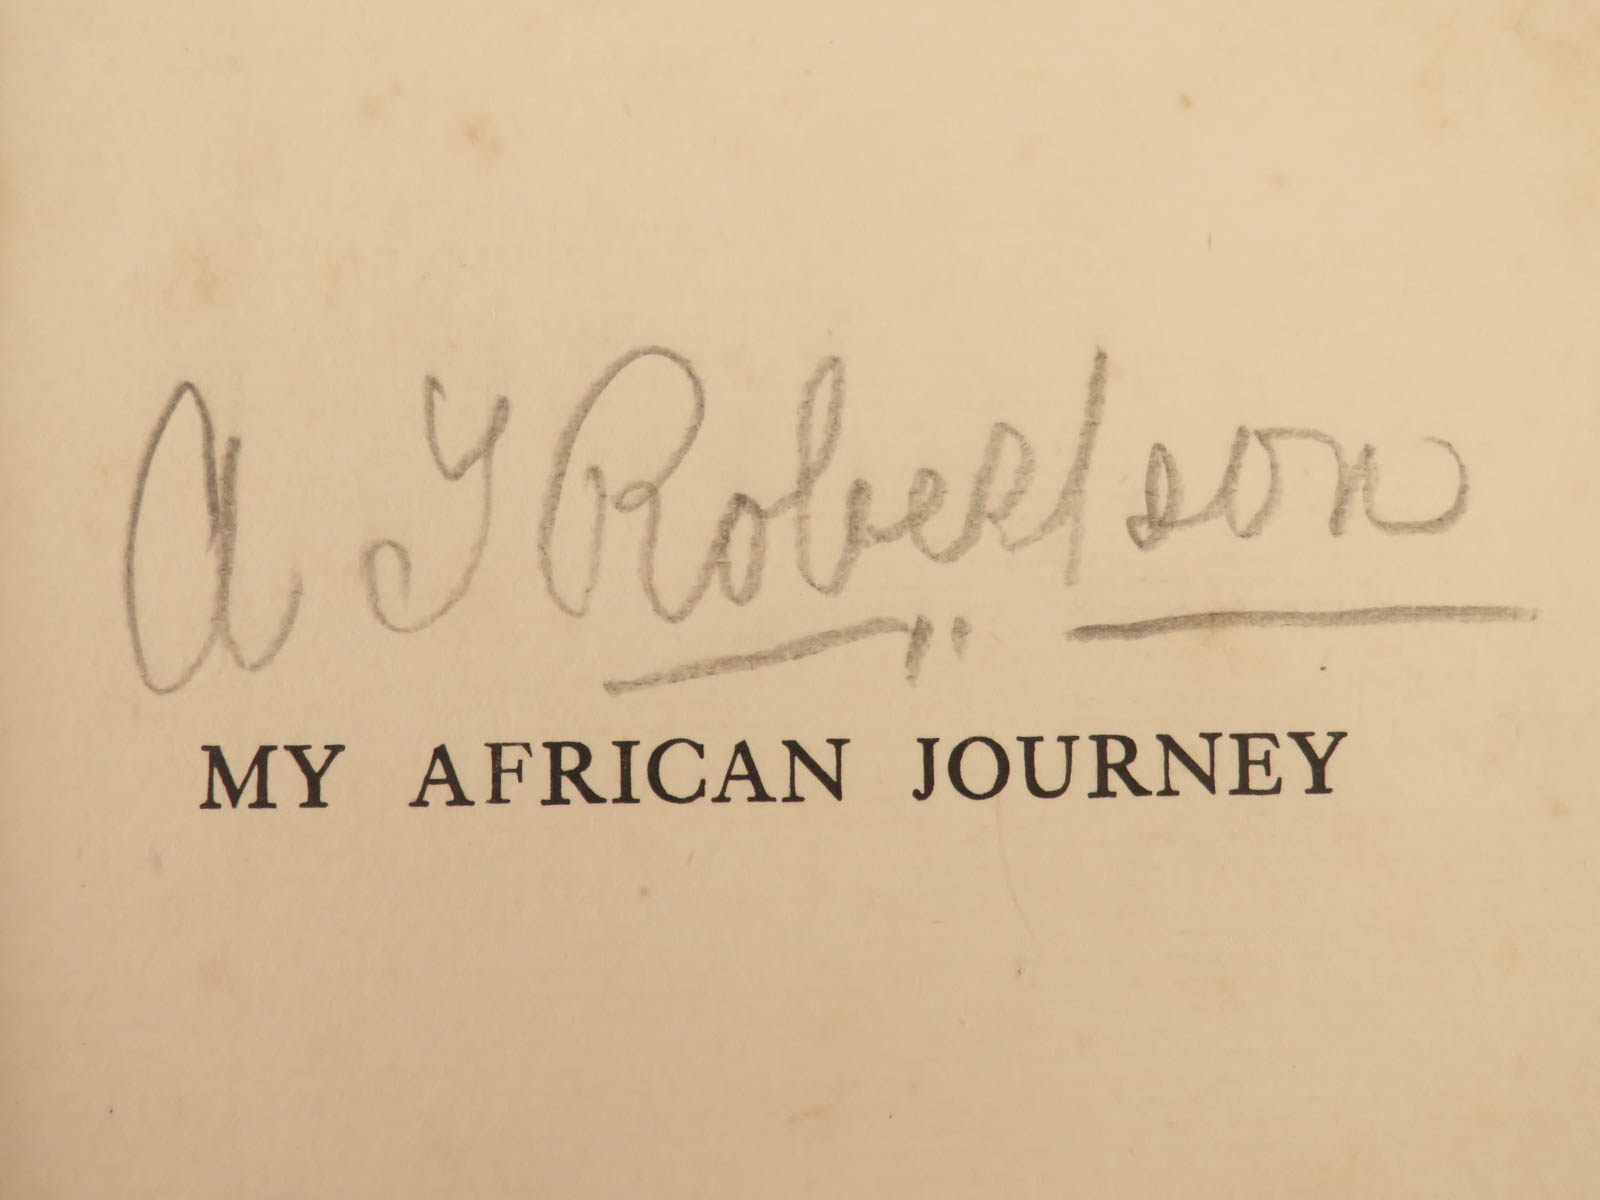 A Y Robertson
MY AFRICAN JOURNEY